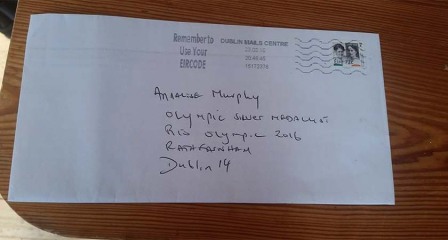 Remember to
Use Your
EIRCODE
DUBLIN MAILS CENTRE
Annalise Murphy
Olympic Silver Medalist
Rio Olympic 2016
Rathfarnham
Dublin 14